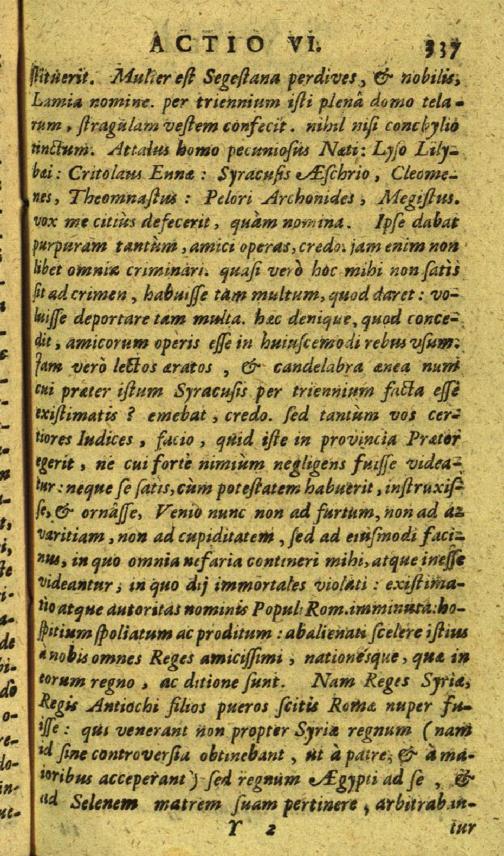 ACTIO VI. 337
stituerit. Mulier est Segestana perdives, & nobilis,
Lamia nomine. per triennium isti plenâ domo tela-
rum, stragulam vestem confecit. nihil nisi conchylio
tinctum. Attalus homo pecuniosus Næti: Lyso Lily-
bæi: Critolaus Ennæ: Syracusis Æschrio, Cleome-
nes, Theomnastus: Pelori Archonides, Megistus.
vox me citiùs defecerit, quàm nomina. Ipse dabat
purpuram tantùm, amici operas, credo. jam enim non
libet omnia criminari. quasi verò hoc mihi non satis
sit ad crimen, habuisse tam multum, quod daret: vo-
luisse deportare tam multa. hæc denique, quod conce-
dit, amicorum operis esse in huiuscemodi rebus usum.
Jam verò lectos æratos, & candelabra ænea num
cui præter istum Syracusis per triennium facta esse
existimatis? emebat, credo. sed tantùm vos cer-
tiores Iudices, facio, quid iste in provincia Prætor
egerit, ne cui fortè nimiùm negligens fuisse videa-
tur: neque se satis, cùm potestatem habuerit, instruxis-
se, & ornâsse. Venio nunc non ad furtum, non ad a-
varitiam, non ad cupiditatem, sed ad eiusmodi faci-
nus, in quo omnia nefaria contineri mihi, atque inesse
videantur; in quo dij immortales violati: existima-
tio atque autoritas nominis Populi Rom. imminuta: ho-
spitium spoliatum ac proditum: abalienati scelere istius
à nobis omnes Reges amicissimi, nationésque, quæ in
eorum regno, ac ditione sunt. Nam Reges Syriæ,
Regis Antiochi filios pueros scitis Romæ nuper fu-
isse: qui venerant non propter Syriæ regnum (nam
id sine controversia obtinebant, ut à patre, & à ma-
ioribus acceperant) sed regnum Ægypti ad se, &
ad Selenem matrem suam pertinere, arbitraban-
Y 2 tur